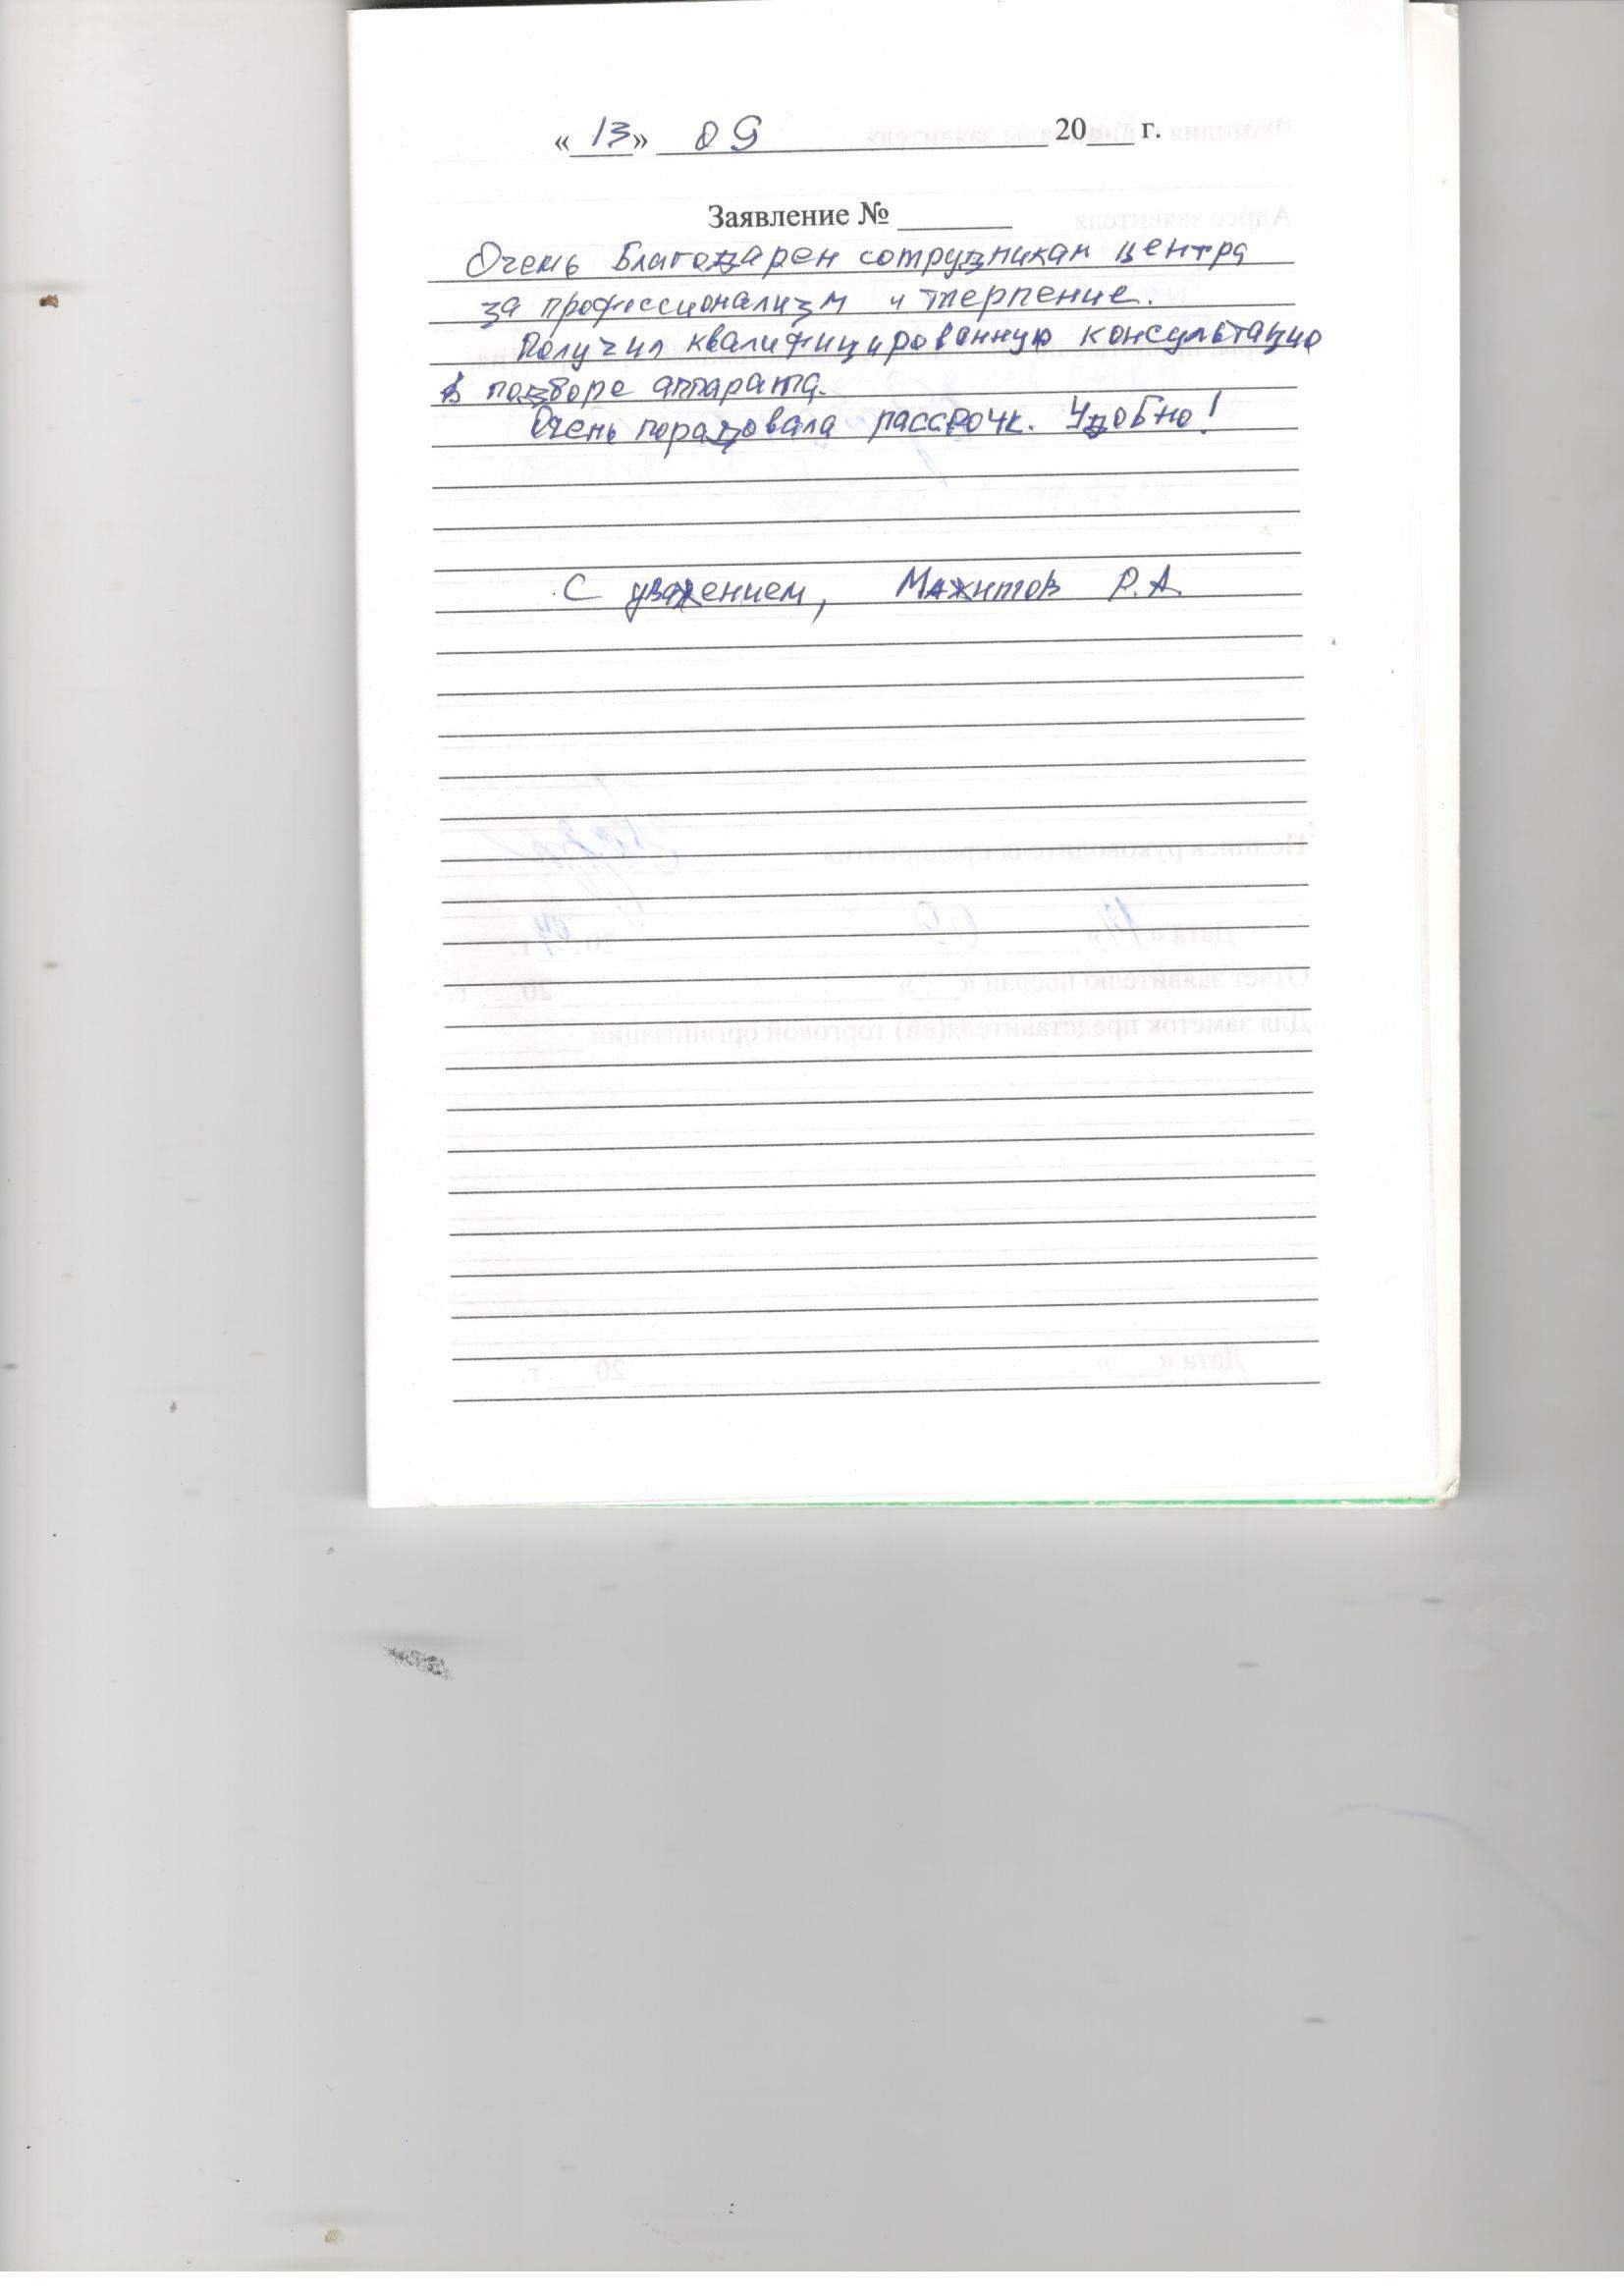 «13» 09 20___ г.
Заявление № ________
Очень благодарен сотрудникам центра
за профессионализм и терпение.
Получил квалифицированную консультацию
в подборе аппарата.
Очень порадовала рассрочк. Удобно!
С уважением, Мажитов Р.А.